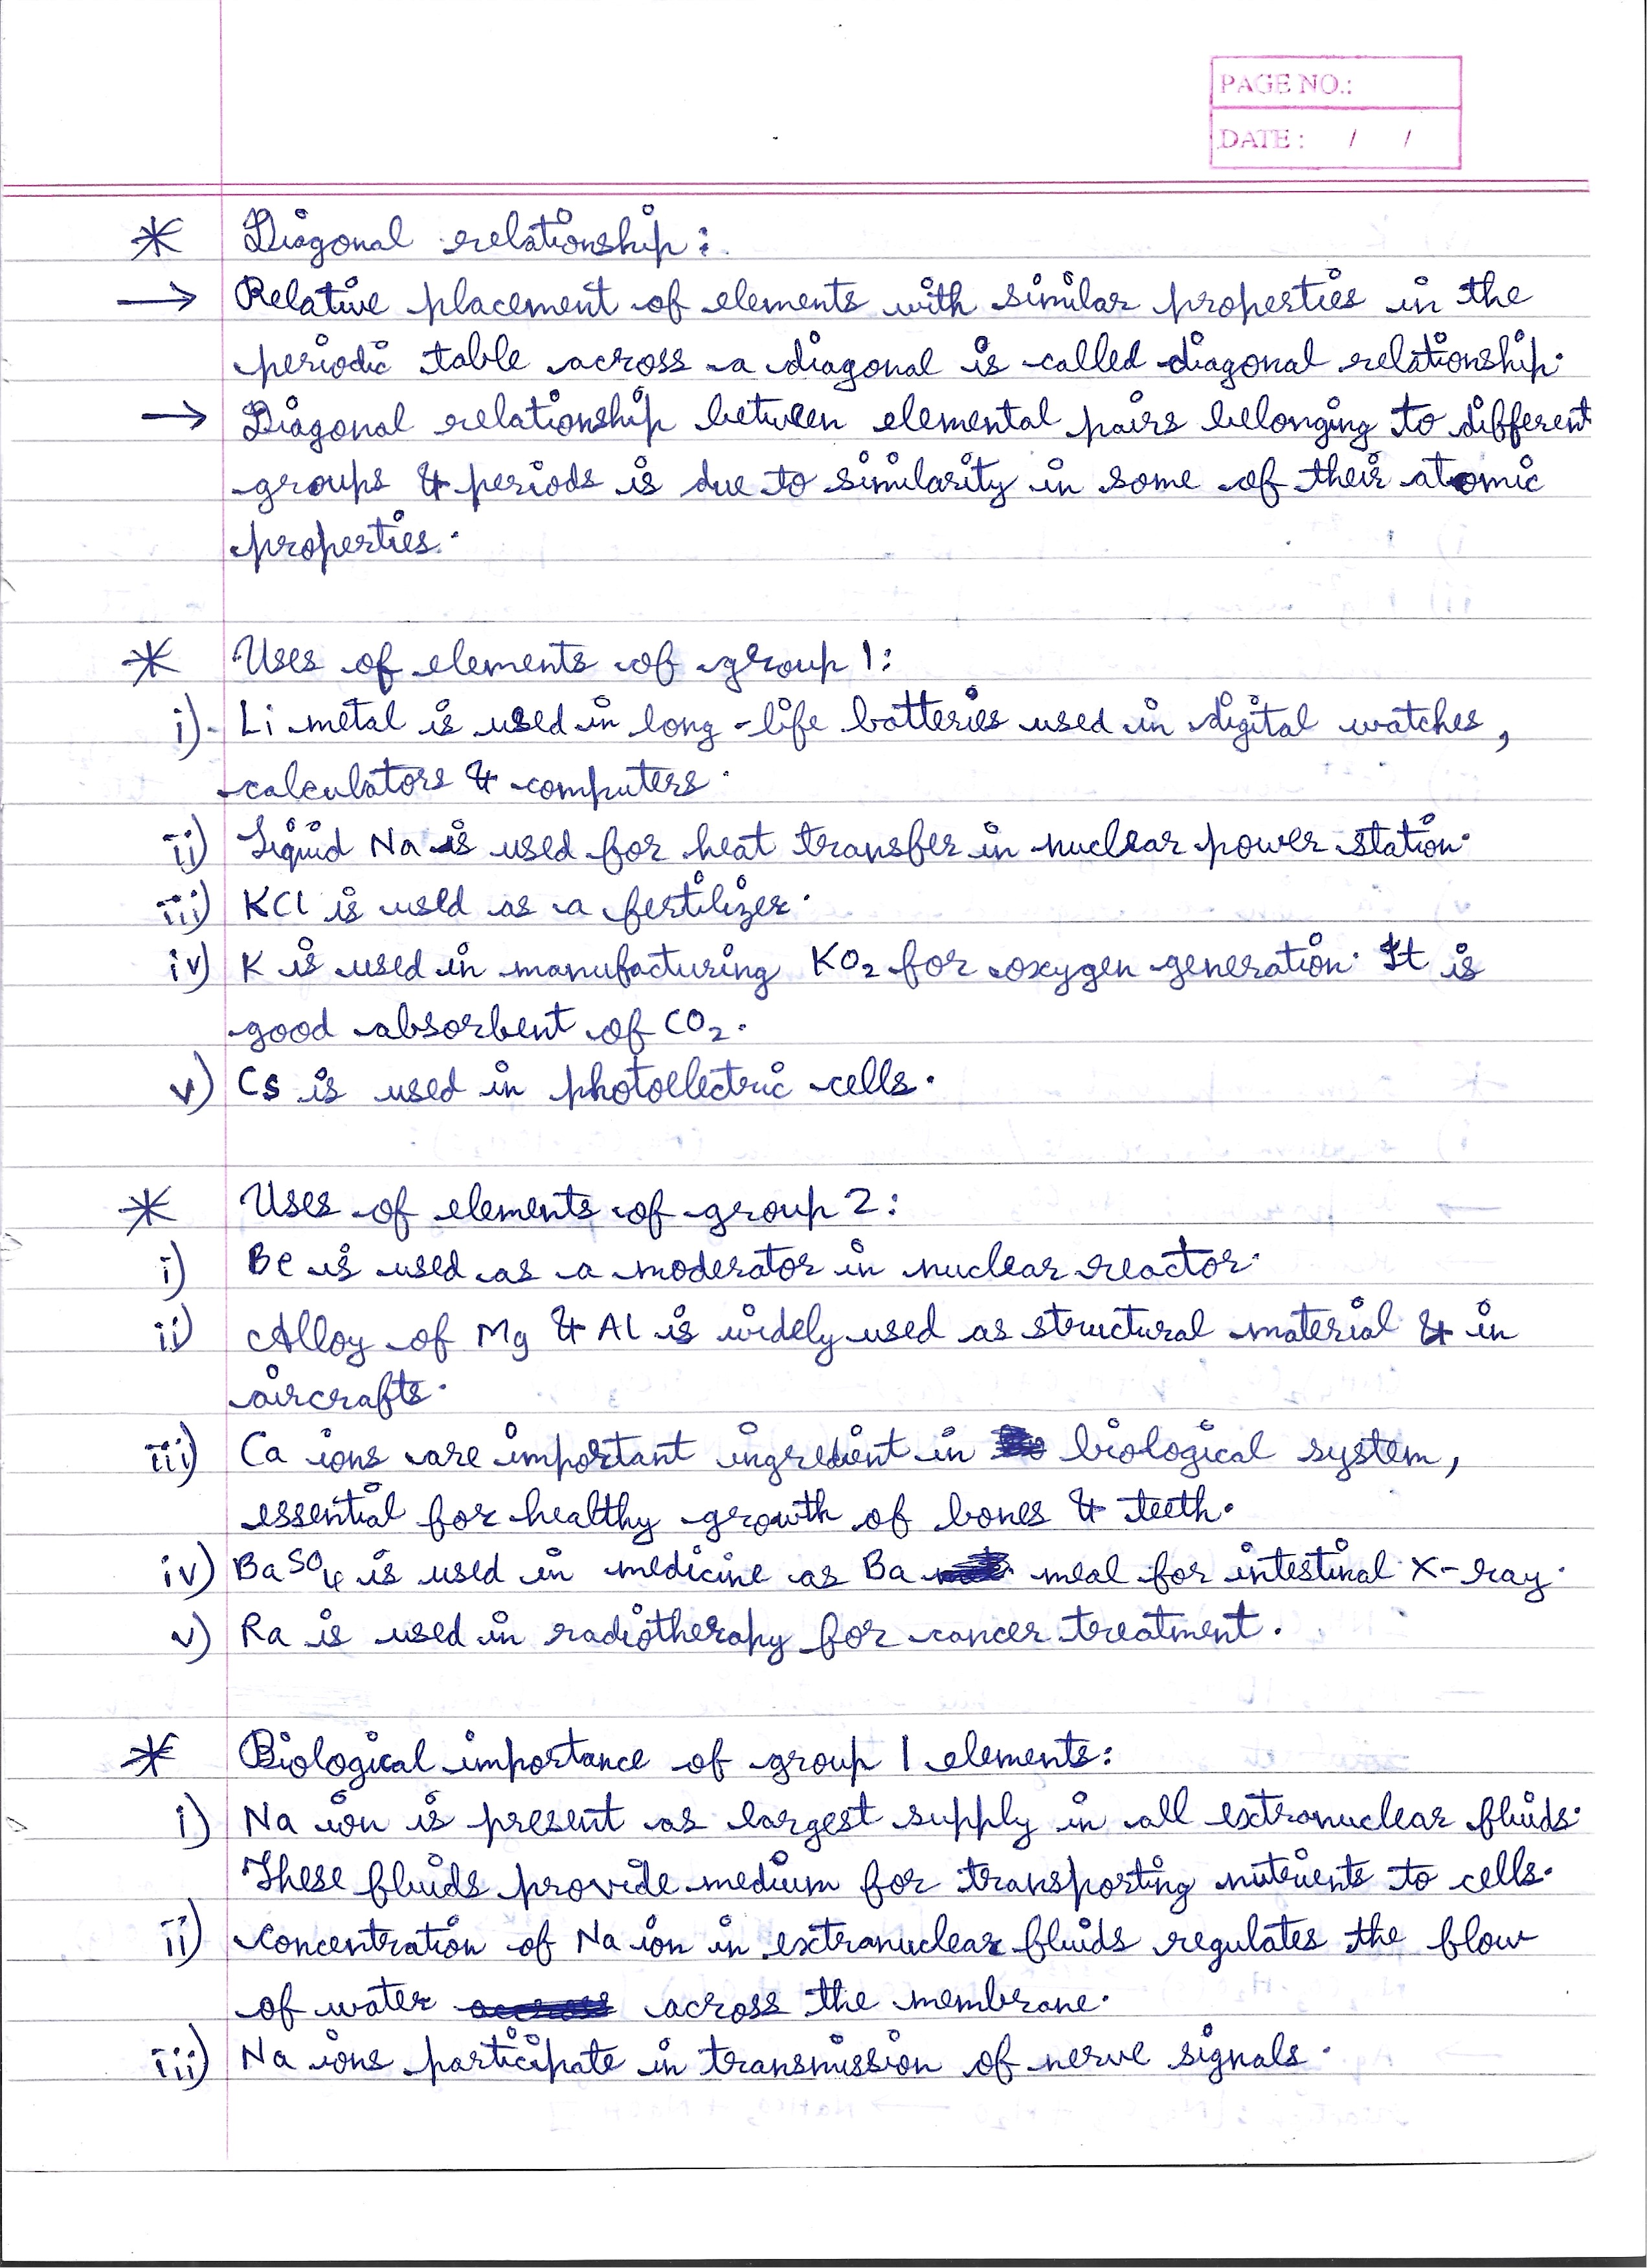 PAGE NO.:
DATE : / /
* Diagonal relationship:
→ Relative placement of elements with similar properties in the
periodic table across a diagonal is called diagonal relationship.
→ Diagonal relationship between elemental pairs belonging to different
groups & periods is due to similarity in some of their atomic
properties.
* Uses of elements of group 1:
i) Li metal is used in long-life batteries used in digital watches,
calculators & computers.
ii) Liquid Na is used for heat transfer in nuclear power station.
iii) KCl is used as a fertilizer.
iv) K is used in manufacturing KO₂ for oxygen generation. It is
good absorbent of CO₂.
v) Cs is used in photoelectric cells.
* Uses of elements of group 2:
i) Be is used as a moderator in nuclear reactor.
ii) Alloy of Mg & Al is widely used as structural material & in
aircrafts.
iii) Ca ions are important ingredient in biological system,
essential for healthy growth of bones & teeth.
iv) BaSO₄ is used in medicine as Ba meal for intestinal X-ray.
v) Ra is used in radiotherapy for cancer treatment.
* Biological importance of group 1 elements:
i) Na ion is present as largest supply in all extranuclear fluids.
These fluids provide medium for transporting nutrients to cells.
ii) Concentration of Na ion in extranuclear fluids regulates the flow
of water across the membrane.
iii) Na ions participate in transmission of nerve signals.